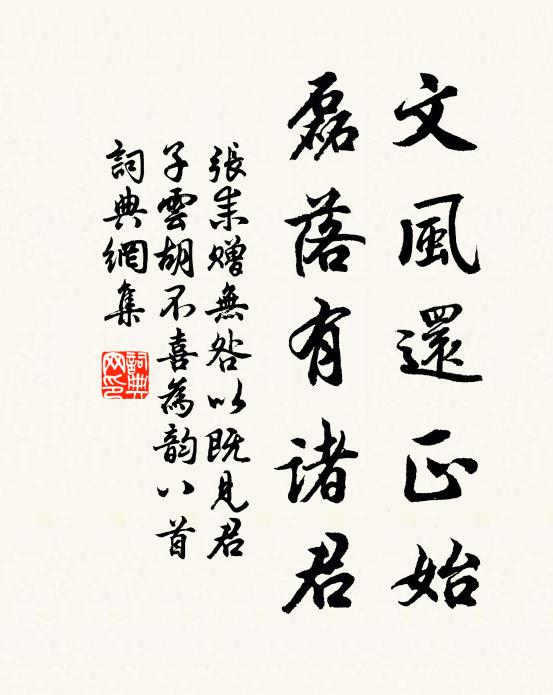 文風還正始
磊落有諸君
張耒贈無咎以既見君
子雲胡不喜為韵八首
詞典網集
詞典
网印